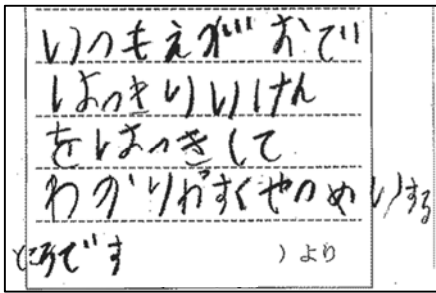 いつもえがおでい
はっきりいけん
をはっきして
わかりやすくせつめいする
ところです
）より